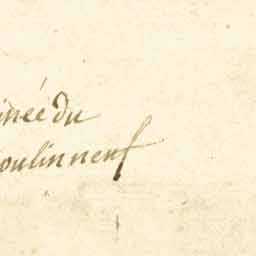 inée du
oulinneuf